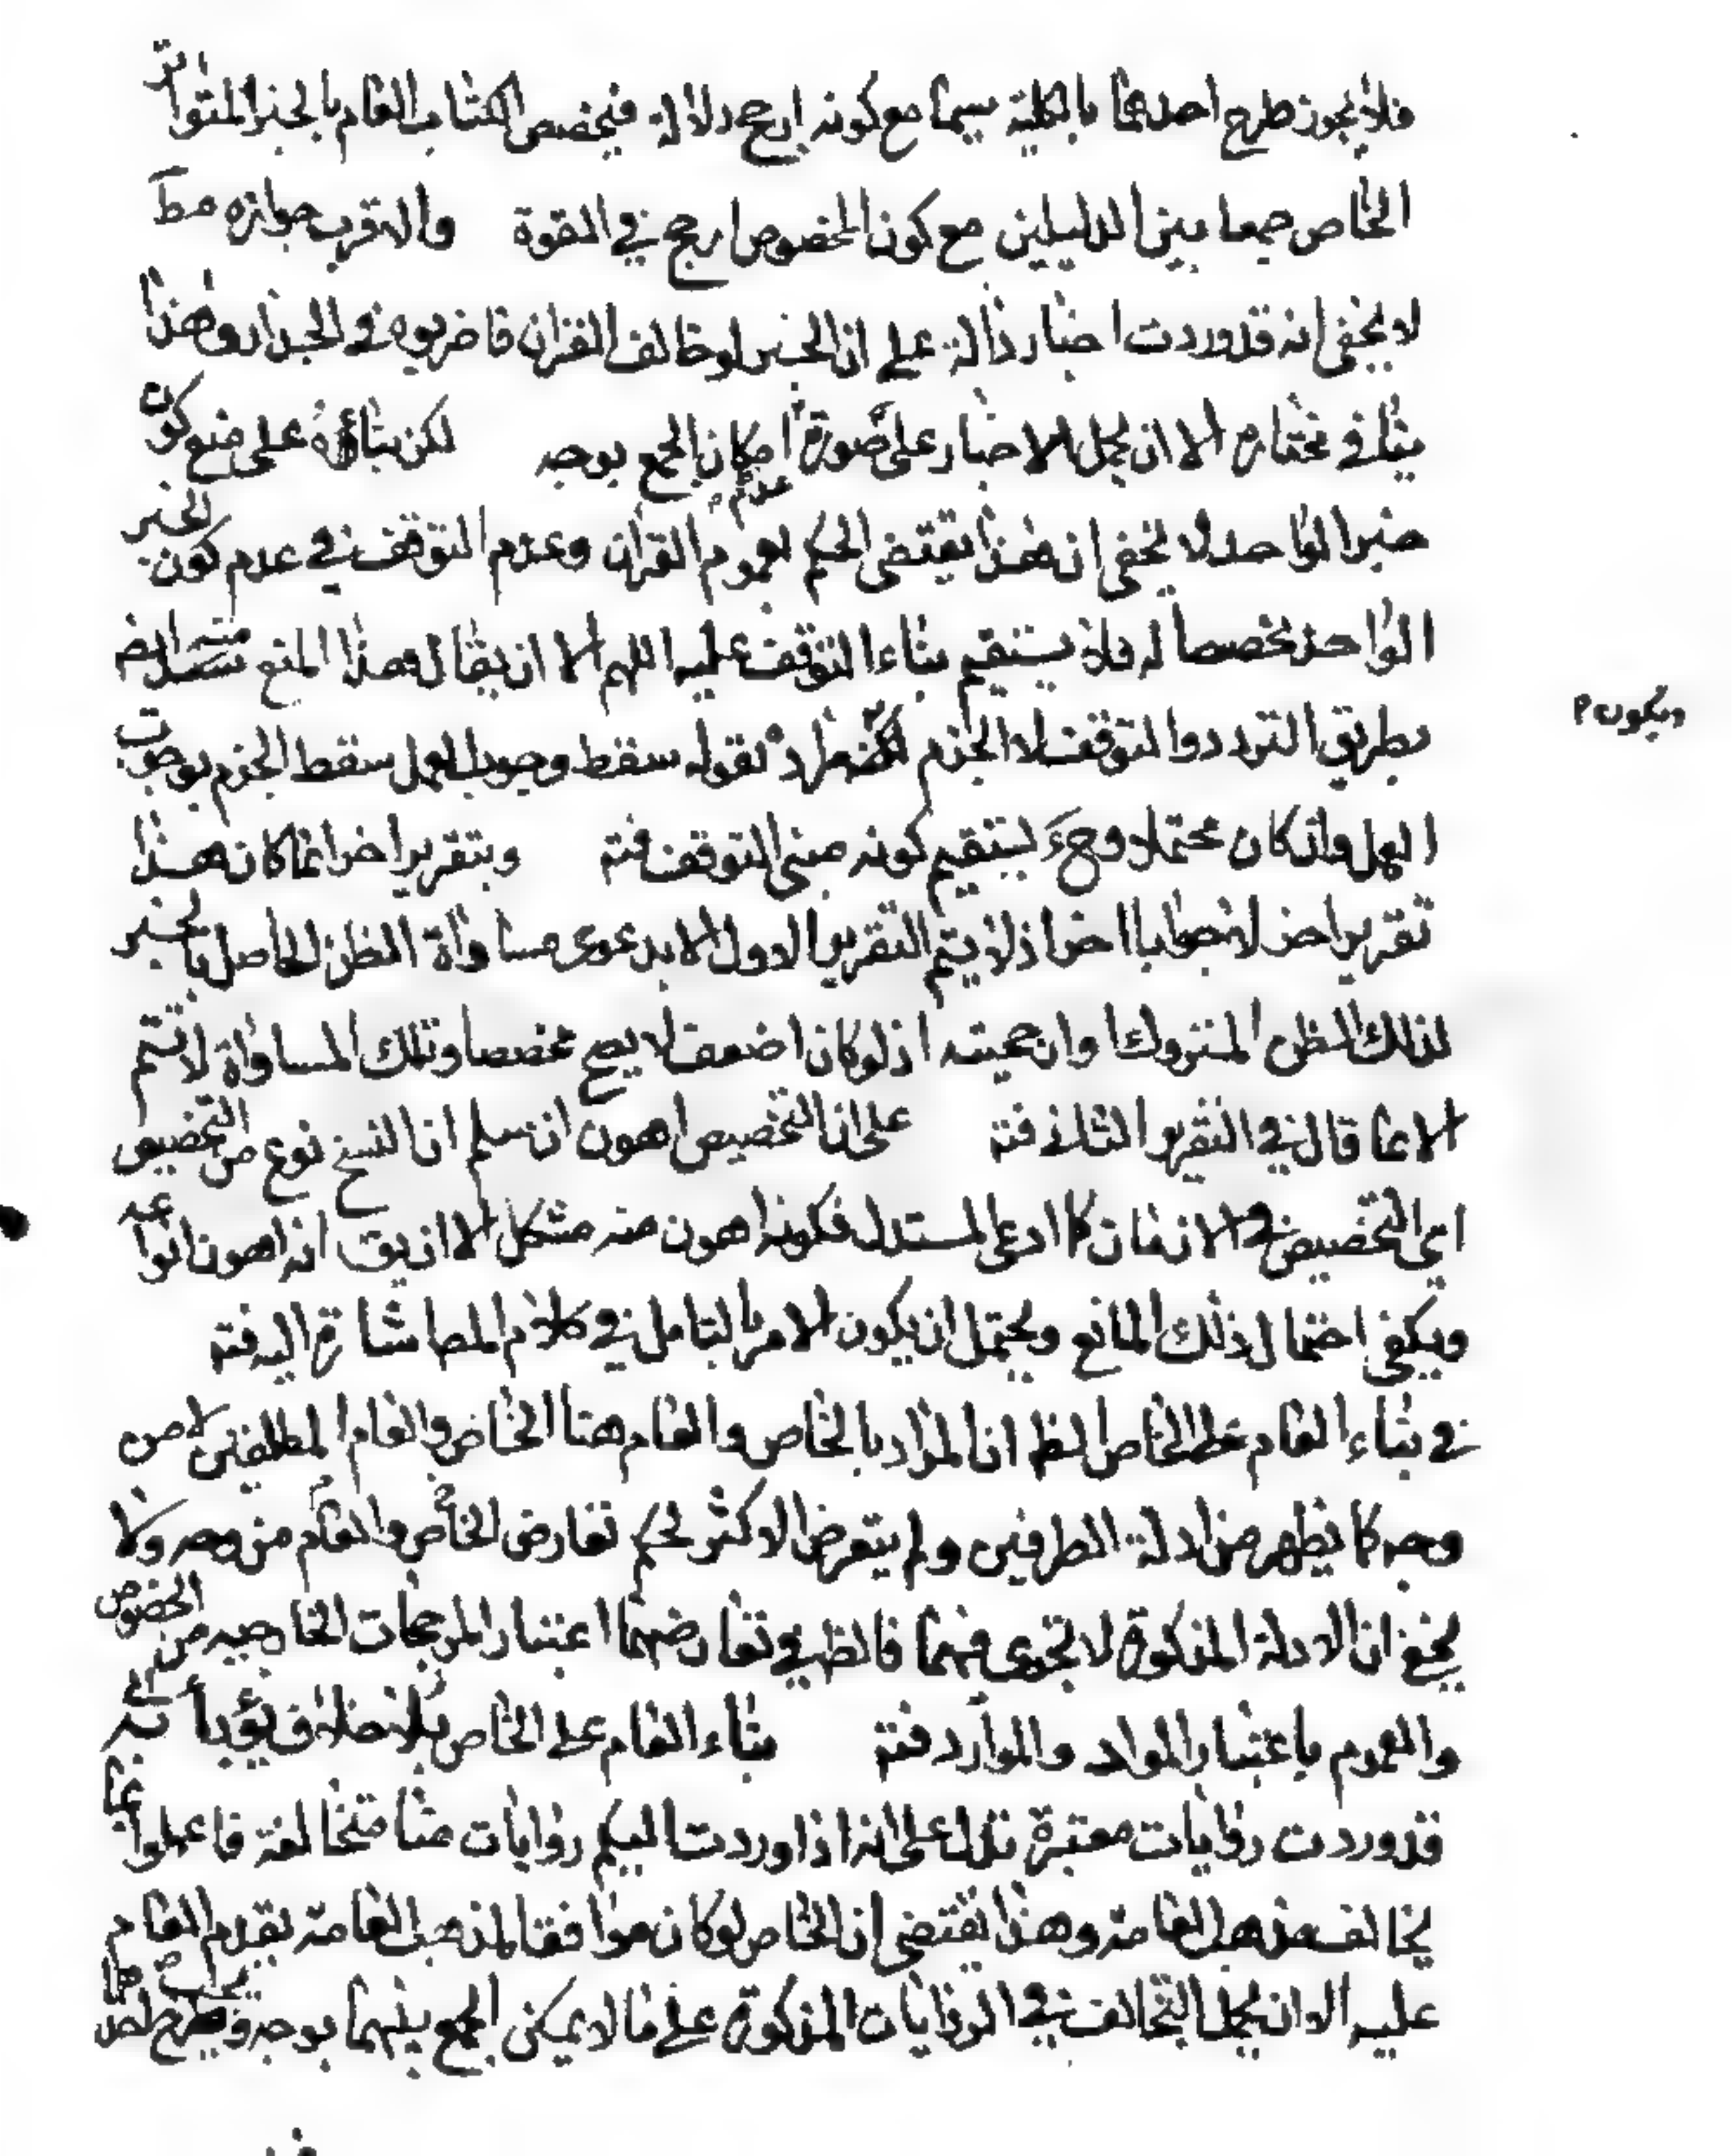 فلا يجوز طرح احدهما بالكلية سيما مع كونه ارجح دلالة فيخصص الكتاب العام بالخبر المتواتر
الخاص جمعا بين الدليلين مع كون المخصوص ارجح في القوة والاقرب جوازه مط
لا يخفى انه قد وردت اخبار دالة على ان الخبر لو خالف القران فاضربوه في الجدار وهذا
ينافي مختاره الا ان يحمل الاخبار على صورة عدم امكان الجمع بوجه لكن بناؤه على منع كون
خبر الواحد لا يخفى ان هذا يقتضى الحكم لعموم القران وعدم التوقف في عدم كون الخبر
الواحد مخصصا له فلا يستقيم بناء التوقف عليه اللهم الا ان يقال هذا المنع منه ايضا
بطريق التردد والتوقف لا الجزم لكنه اراد بقوله سقط وجوب العمل سقط الجزم بوجوب
ويكون
العمل وان كان محتملا وح يستقيم كونه مبنى التوقف فتم وبتقرير اخر انما كان هذا
تقرير اخر لا جوابا اخر اذ لا يتم التقرير الاول الا بدعوى مساواة الظن الحاصل بالخبر
لذلك الظن المتروك او ارجحيته اذ لو كان اضعف لا يصح مخصصا وتلك المساواة لا تتم
الا بما قال في التقرير الثاني فتم على ان التخصيص اهون ان سلم ان النسخ نوع من التخصيص
اعنى التخصيص في الازمان كما ادعى المستدل فكونه اهون منه مشكل الا ان يق انه اهون انواعه
ويكفى احتمال ذلك المانع ويحتمل ان يكون الامر بالتامل في كلام المص اشارة اليه فتم
في بناء العام على الخاص الظ ان المراد بالخاص والعام هنا الخاص والعام المطلقين لا من
وجه كما يظهر من ادلة الطرفين ولم يتعرض الاكثر لحكم تعارض الخاص والعام من وجه ولا
يخفى ان الادلة المذكورة لا تجرى فيهما فالظ في تعارضهما اعتبار المرجحات الخارجيه من الخصوص
والعموم باعتبار المواد والموارد فتم بناء العام على الخاص بلا خلاف يؤبأ به
قد وردت روايات معتبرة تدل على انه اذا وردت اليكم روايات منا متخالفة فاعملوا بما
يخالف مذهب العامة وهذا يقتضى ان الخاص لو كان موافقا لمذهب العامة يقدم العام
عليه الا ان يحمل التخالف في الروايات المذكورة على ما لا يمكن الجمع بينهما بوجه ويجب طرح احدهما